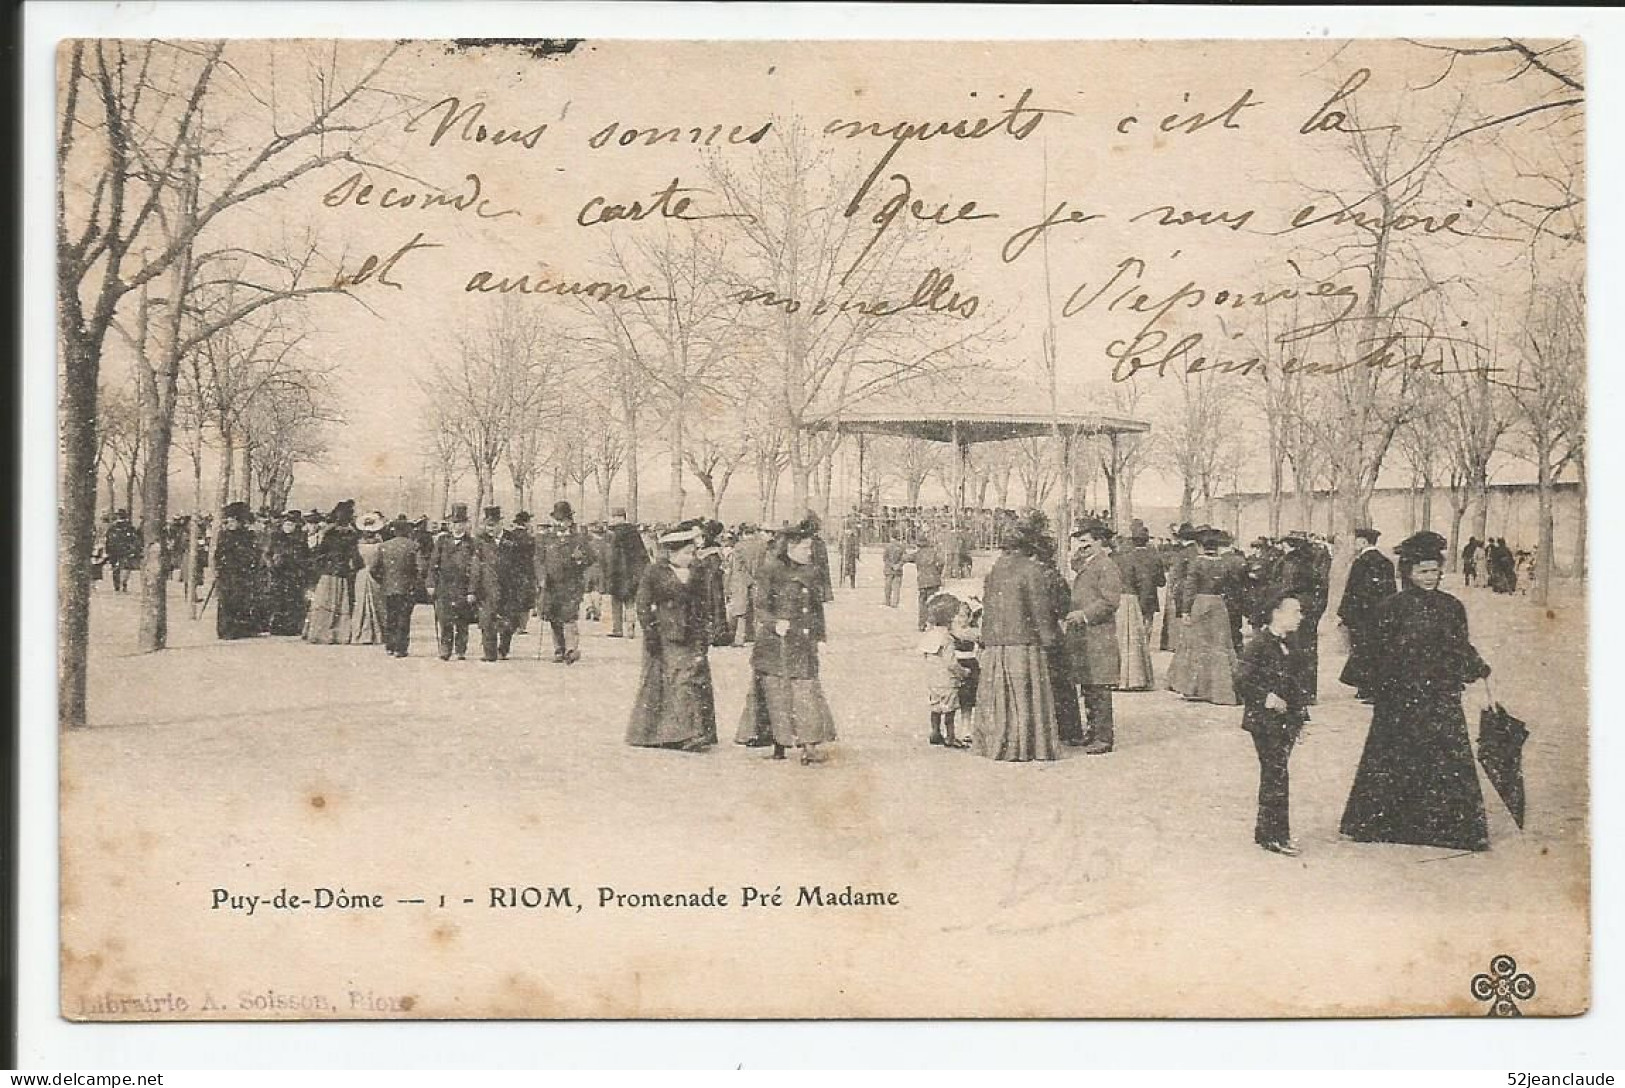 Nous sommes inquiets c'est la
seconde carte que je vous envoie
et aucune nouvelles Réponder
Clémentine
Puy-de-Dôme — 1 - RIOM, Promenade Pré Madame
Librairie A. Soisson, Riom
C C & C
52jeanclaude
delcampe.net